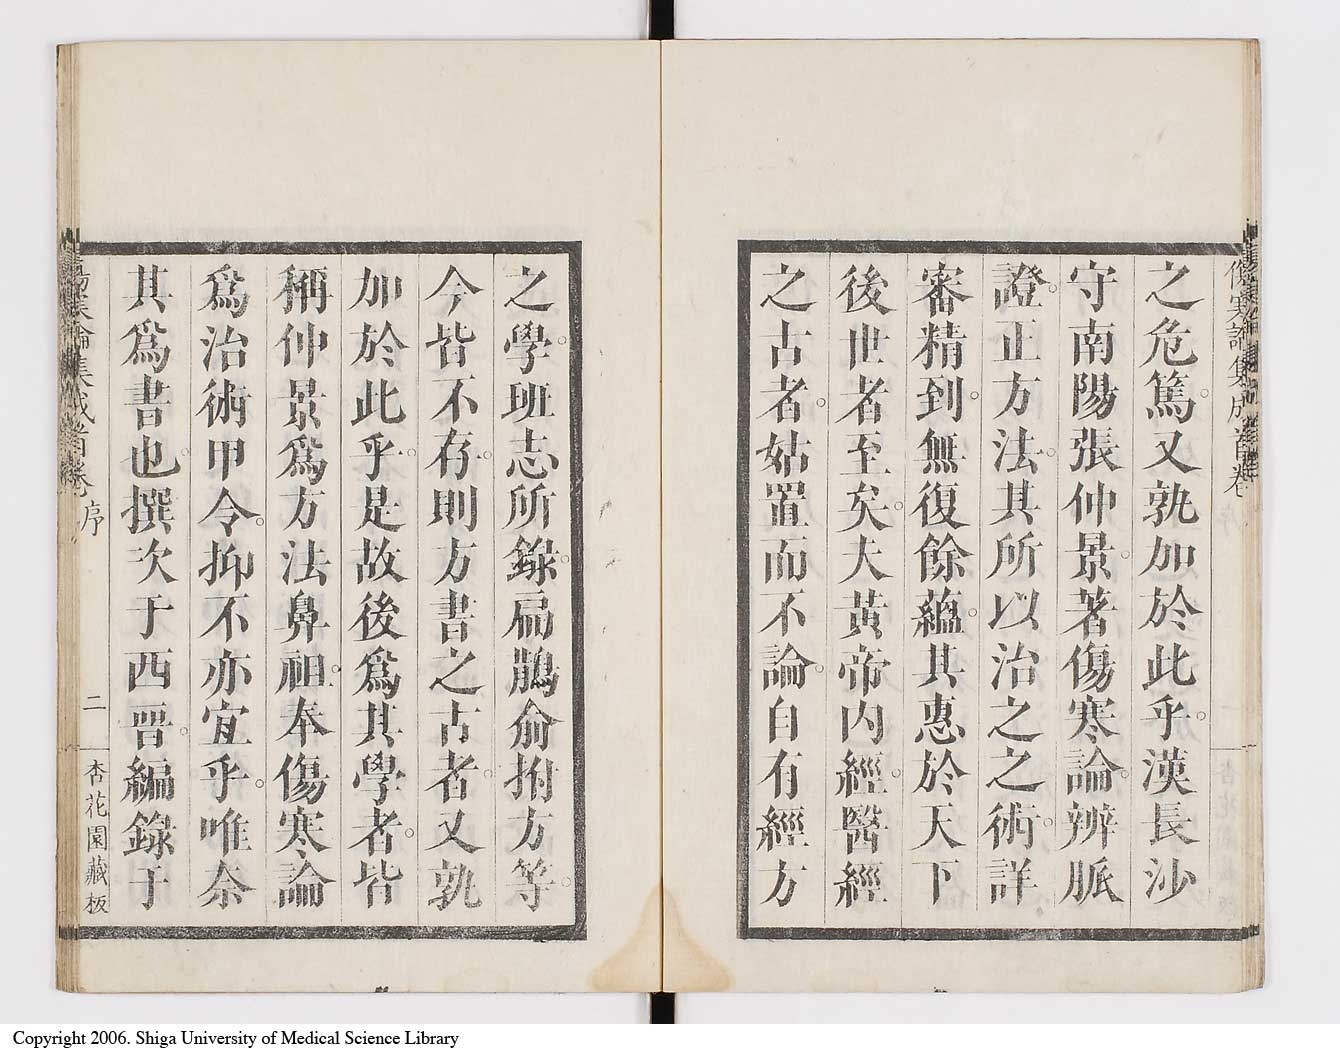 之危篤又孰加於此乎。漢長沙
守南陽張仲景。著傷寒論。辨脈
證。正方法。其所以治之之術。詳
審精到。無復餘蘊。其惠於天下
後世者至矣。夫黃帝內經。醫經
之古者。姑置而不論。自有經方
之學。班志所錄。扁鵲俞拊方等。
今皆不存。則方書之古者。又孰
加於此乎。是故後爲其學者。皆
稱仲景爲方法鼻祖。奉傷寒論
爲治術甲令。抑不亦宜乎。唯奈
其爲書也。撰次于西晋。編錄于
傷寒論集成首卷
序
二
杏花園藏板
Copyright 2006. Shiga University of Medical Science Library